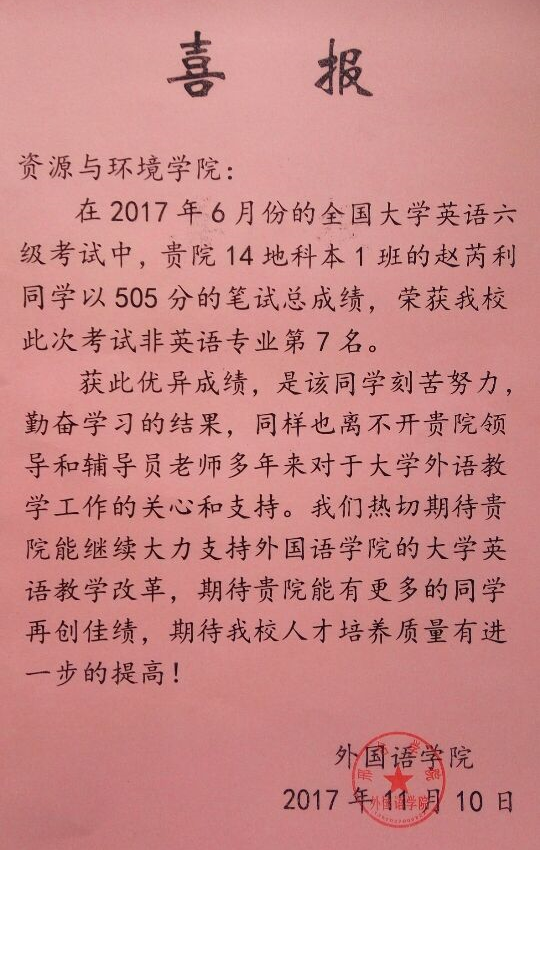 喜报
资源与环境学院：
在2017年6月份的全国大学英语六
级考试中，贵院14地科本1班的赵芮利
同学以505分的笔试总成绩，荣获我校
此次考试非英语专业第7名。
获此优异成绩，是该同学刻苦努力，
勤奋学习的结果，同样也离不开贵院领
导和辅导员老师多年来对于大学外语教
学工作的关心和支持。我们热切期待贵
院能继续大力支持外国语学院的大学英
语教学改革，期待贵院能有更多的同学
再创佳绩，期待我校人才培养质量有进
一步的提高！
外国语学院
2017年11月10日
外国语学院